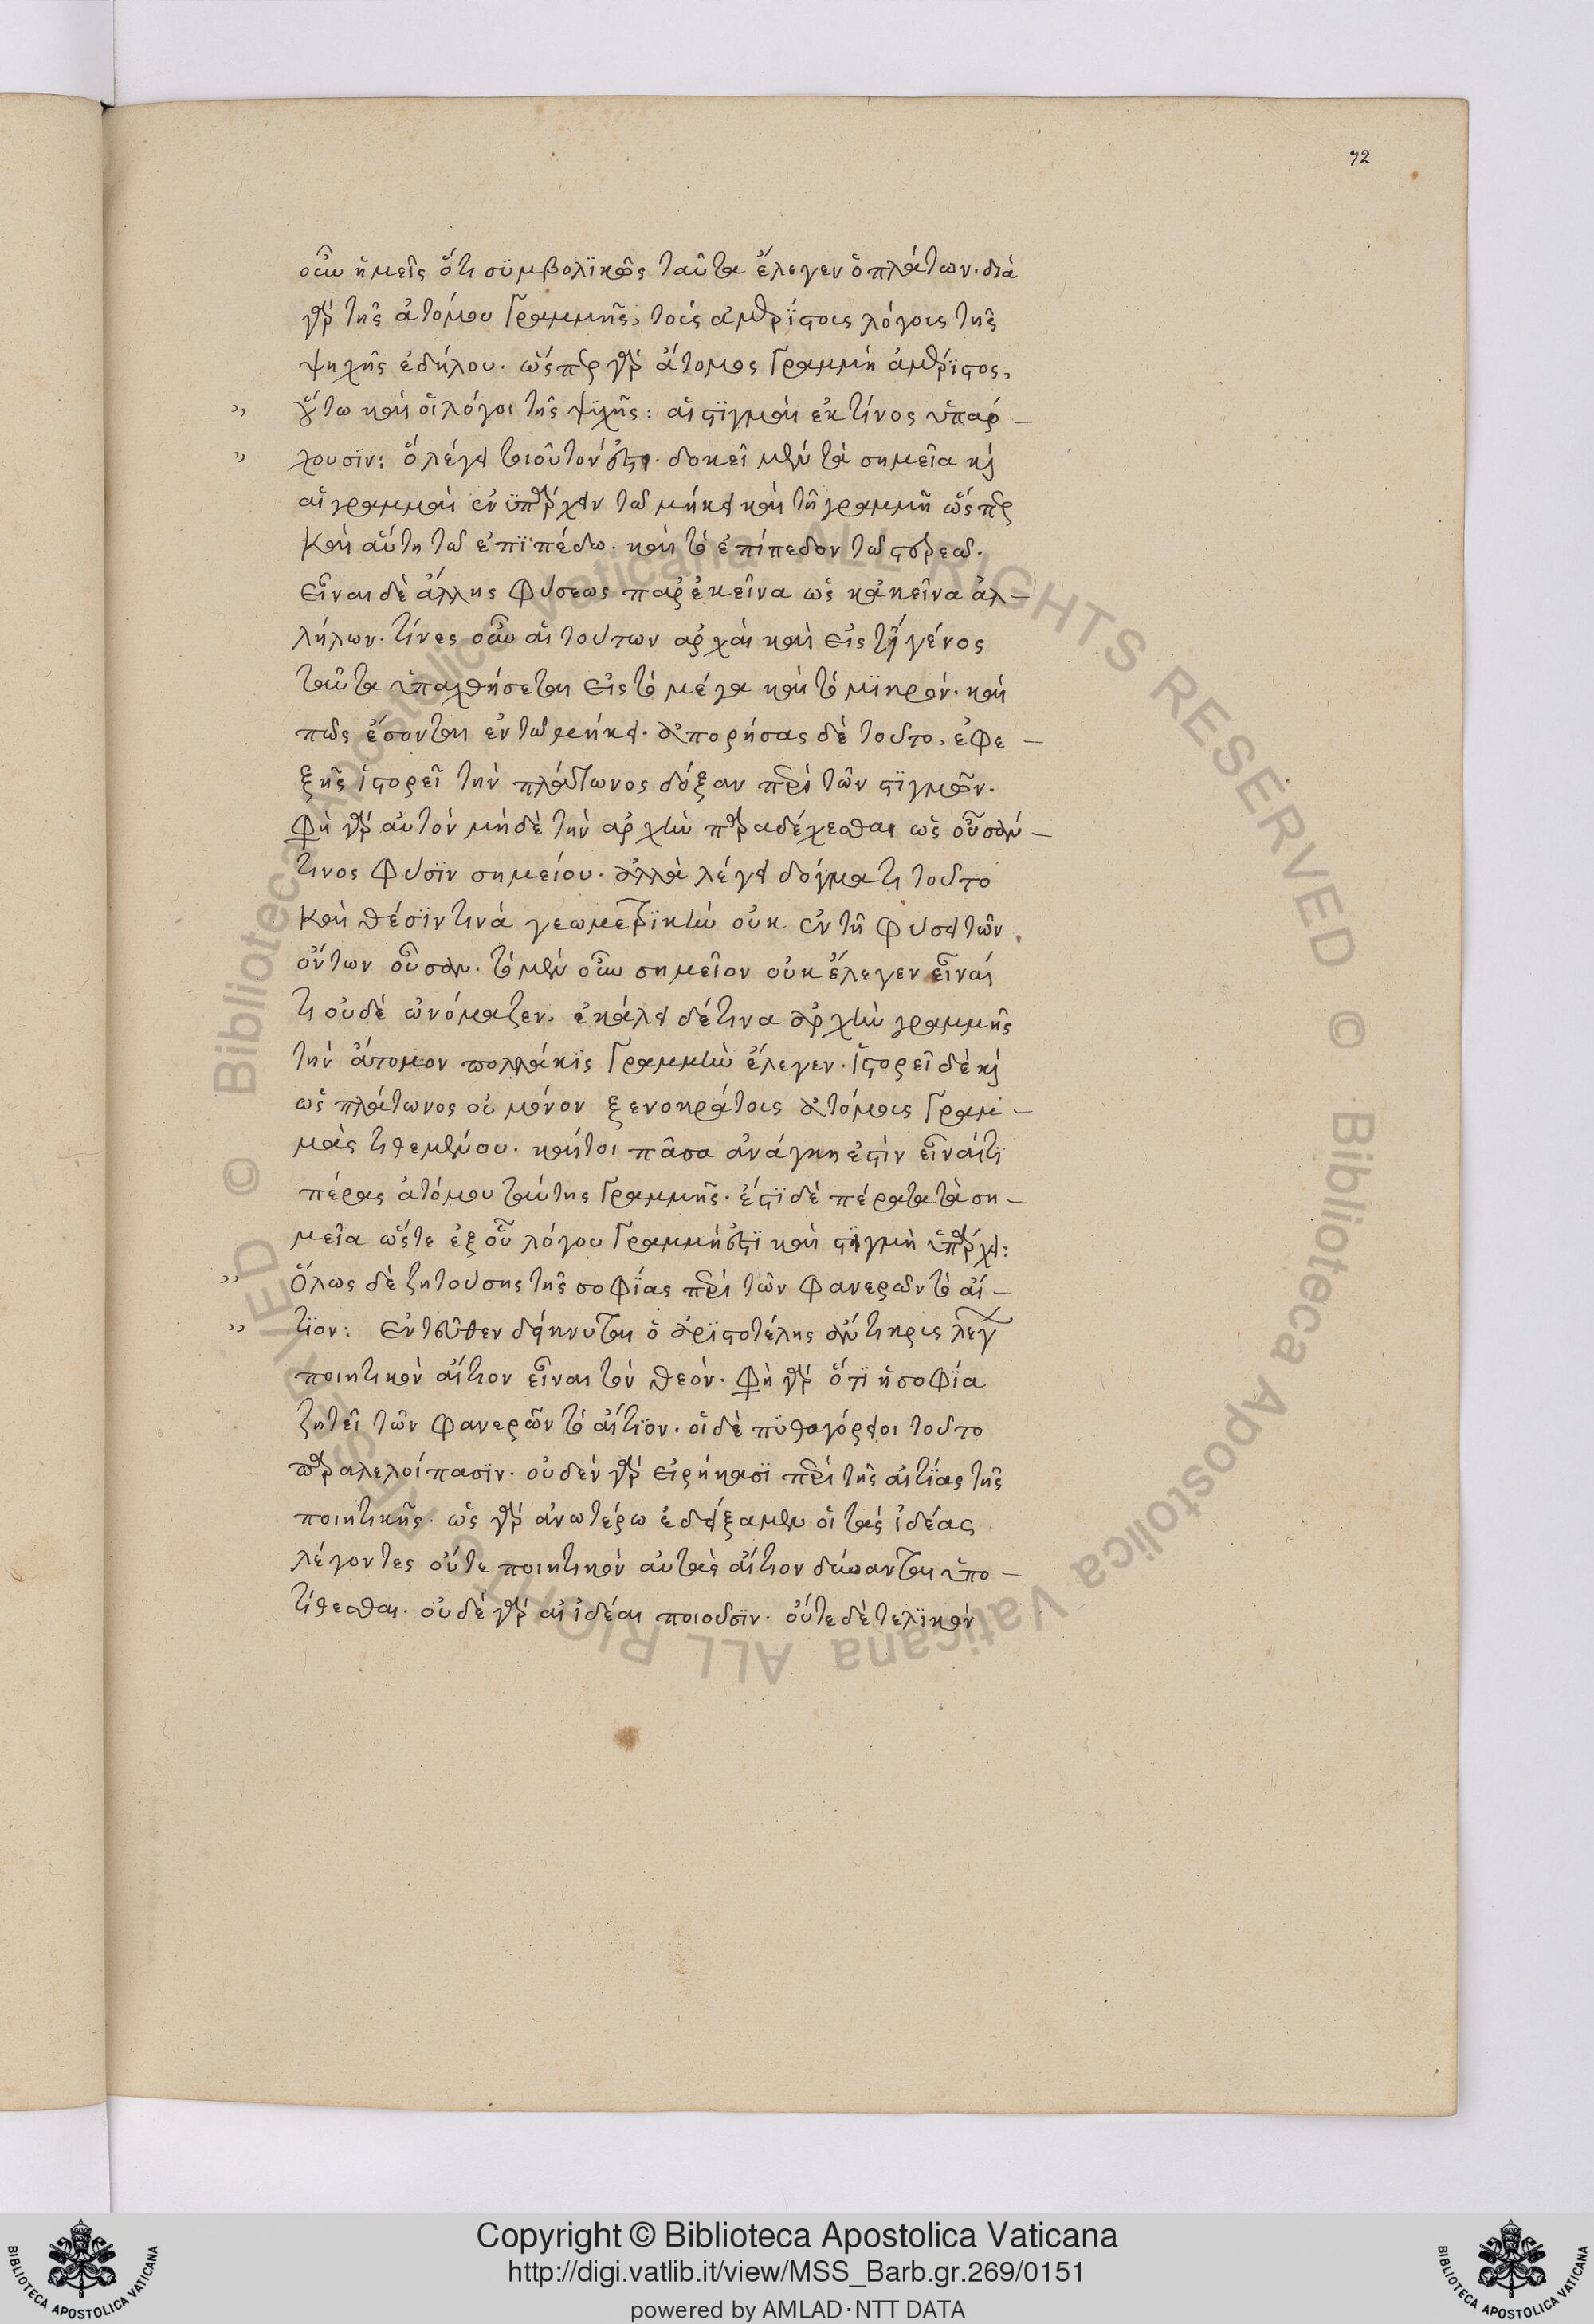 72
οὖν ἡμεῖς ὅτι συμβολϊκῶς ταῦτα ἔλεγεν ὁ πλάτων. διὰ
γὰρ τῆς ἀτόμου Γραμμῆς, τοὺς ἀμερίστους λόγους τῆς
ψυχῆς ἐδήλου. ὥσπερ γὰρ ἄτομος Γραμμὴ ἀμέριστος,
οὕτω καὶ οἱ λόγοι τῆς ψϋχῆς: αἱ στϊγμαὶ ἐκ τίνος ὑπάρ-
χουσϊν: ὃ λέγει τοιοῦτόν ἐστι. δοκεῖ μὲν τὰ σημεῖα καὶ
αἱ γραμμαὶ ἐνϋπάρχειν τῶ μήκει καὶ τῆ γραμμῆ ὥσπερ
καὶ αὕτη τῶ ἐπϊπέδω. καὶ τὸ ἐπίπεδον τῶ στερεῶ.
εἶναι δὲ ἄλλης φύσεως παρ' ἐκεῖνα ὡς κἀκεῖνα ἀλ-
λήλων. τίνες οὖν αἱ τούτων ἀρχαὶ καὶ εἰς τί γένος
ταῦτα ὑπαχθήσεται εἰς τὸ μέγα καὶ τὸ μϊκρόν. καὶ
πῶς ἔσονται ἐν τῶ μήκει. ἀπορήσας δὲ τοῦτο, ἐφε-
ξῆς ἱστορεῖ τὴν πλάτωνος δόξαν περὶ τῶν στϊγμῶν.
φησὶ γὰρ αὐτὸν μηδὲ τὴν ἀρχὴν παραδέχεσθαι ὡς οὖσάν
τινος φύσϊν σημείου. ἀλλὰ λέγει δόγματι τοῦτο
καὶ θέσϊν τινὰ γεωμετρϊκὴν οὐκ ἐν τῆ φύσει τῶν
ὄντων οὖσαν. τὸ μὲν οὖν σημεῖον οὐκ ἔλεγεν εἶναί
τι οὐδὲ ὠνόμαζεν. ἐκάλει δέ τινα ἀρχὴν γραμμῆς
τὴν ἄτομον πολλάκϊς Γραμμὴν ἔλεγεν. ἱστορεῖ δὲ καὶ
ὡς πλάτωνος οὐ μόνον ξενοκράτους ἀτόμους Γραμ-
μὰς τιθεμένου. καίτοι πᾶσα ἀνάγκη ἐστὶν εἶναί τϊ
πέρας ἀτόμου ταύτης Γραμμῆς. ἔστϊ δὲ πέρατα τὰ ση-
μεῖα ὥστε ἐξ οὗ λόγου Γραμμή ἐστϊ καὶ στϊγμὴ ὑπάρχει:
Ὅλως δὲ ζητούσης τῆς σοφίας περὶ τῶν φανερῶν τὸ αἴ-
τϊον: ἐντεῦθεν δείκνυται ὁ ἀρϊστοτέλης ἄντικρυς λέγων
ποιητικὸν αἴτιον εἶναι τὸν θεόν. φησὶ γὰρ ὅτϊ ἡ σοφϊα
ζητεῖ τῶν φανερῶν τὸ αἴτϊον. οἱ δὲ πϋθαγόρειοι τοῦτο
παραλελοίπασϊν. οὐδὲν γὰρ εἰρήκασϊ περὶ τῆς αἰτϊας τῆς
ποιητικῆς. ὡς γὰρ ἀνωτέρω ἐδείξαμεν οἱ τὰς ἰδέας
λέγοντες οὔτε ποιητικὸν αὐτὰς αἴτιον δύνανται ὑπο-
τίθεσθαι. οὐδὲ γὰρ αἱ ἰδέαι ποιοῦσϊν. οὔτε δὲ τελϊκὸν
© Biblioteca Apostolica Vaticana ALL RIGHTS RESERVED © Biblioteca Apostolica Vaticana ALL RIGHTS RESERVED
Copyright © Biblioteca Apostolica Vaticana
http://digi.vatlib.it/view/MSS_Barb.gr.269/0151
powered by AMLAD·NTT DATA
BIBLIOTECA APOSTOLICA VATICANA
BIBLIOTECA APOSTOLICA VATICANA